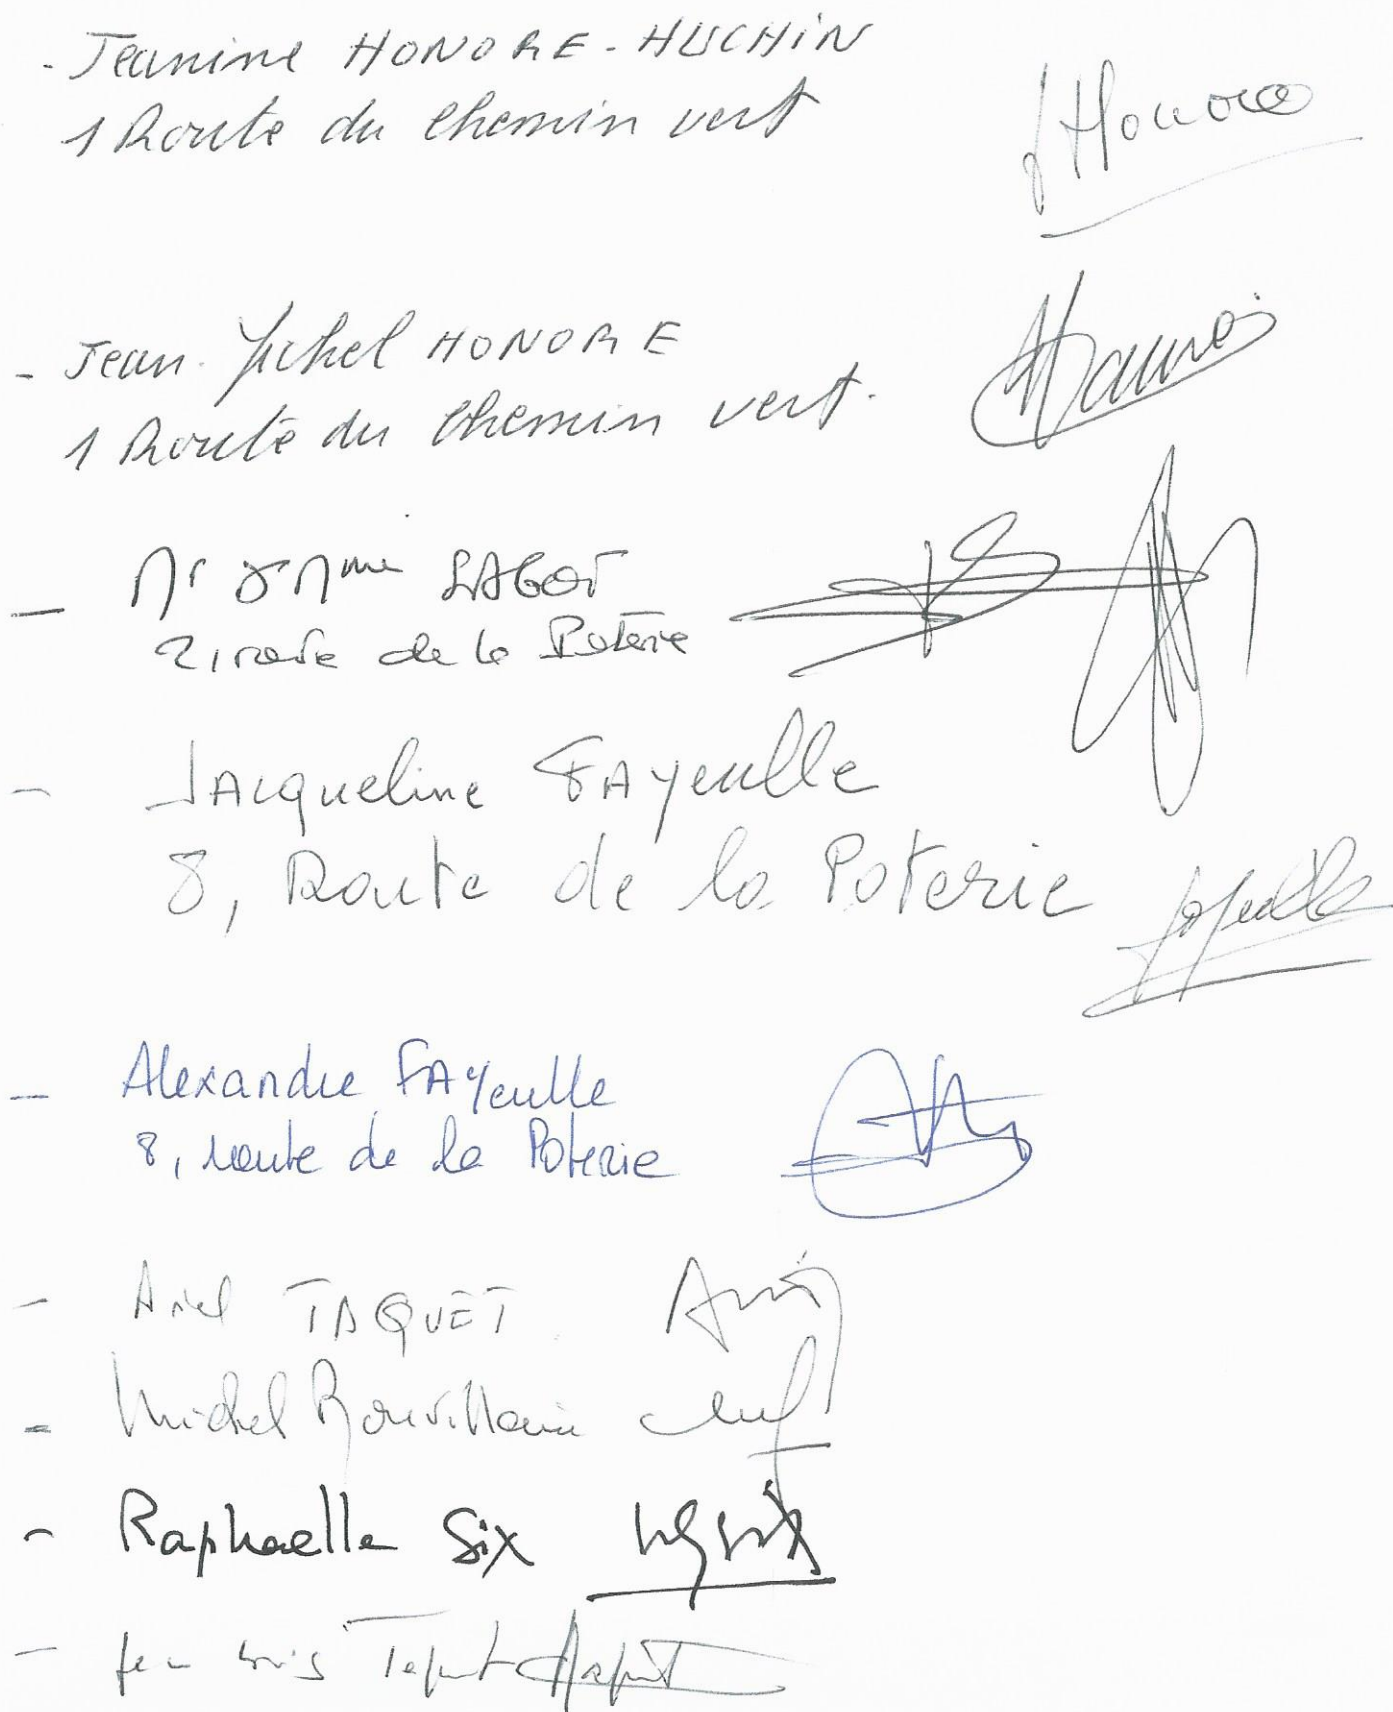 - Jeanine HONORE - HUCHIN
1 Route du Chemin vert
JHonoré
- Jean-Michel HONORE
1 Route du Chemin vert.
- Mr & Mme
2, route de la Poterie
- JAcqueline FAyeulle
8, Route de la Poterie
fayeulle
- Alexandre FAYeulle
8, route de la Poterie
- Ariel TAQUET
- Michel Bouvillain
- Raphaelle Six